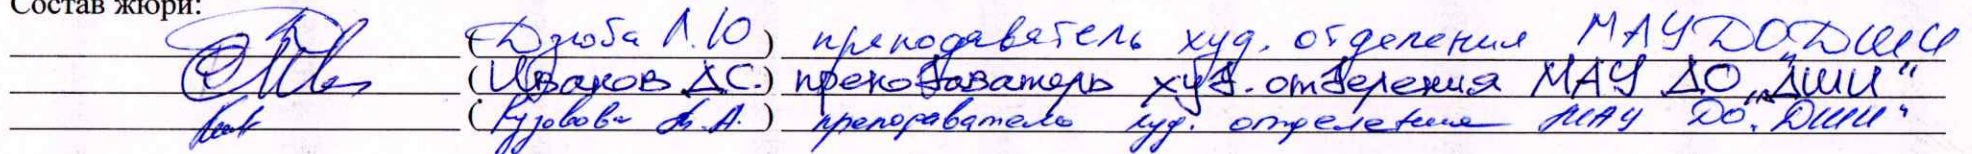 Состав жюри:
(Дзюба Л.Ю) преподаватель худ. отделения МАУДО ДШИ
(Иваков Д.С.) преподаватель худ. отделения МАУ ДО „ДШИ“
(А.А.) преподаватель худ. отделения МАУ ДО „ДШИ“